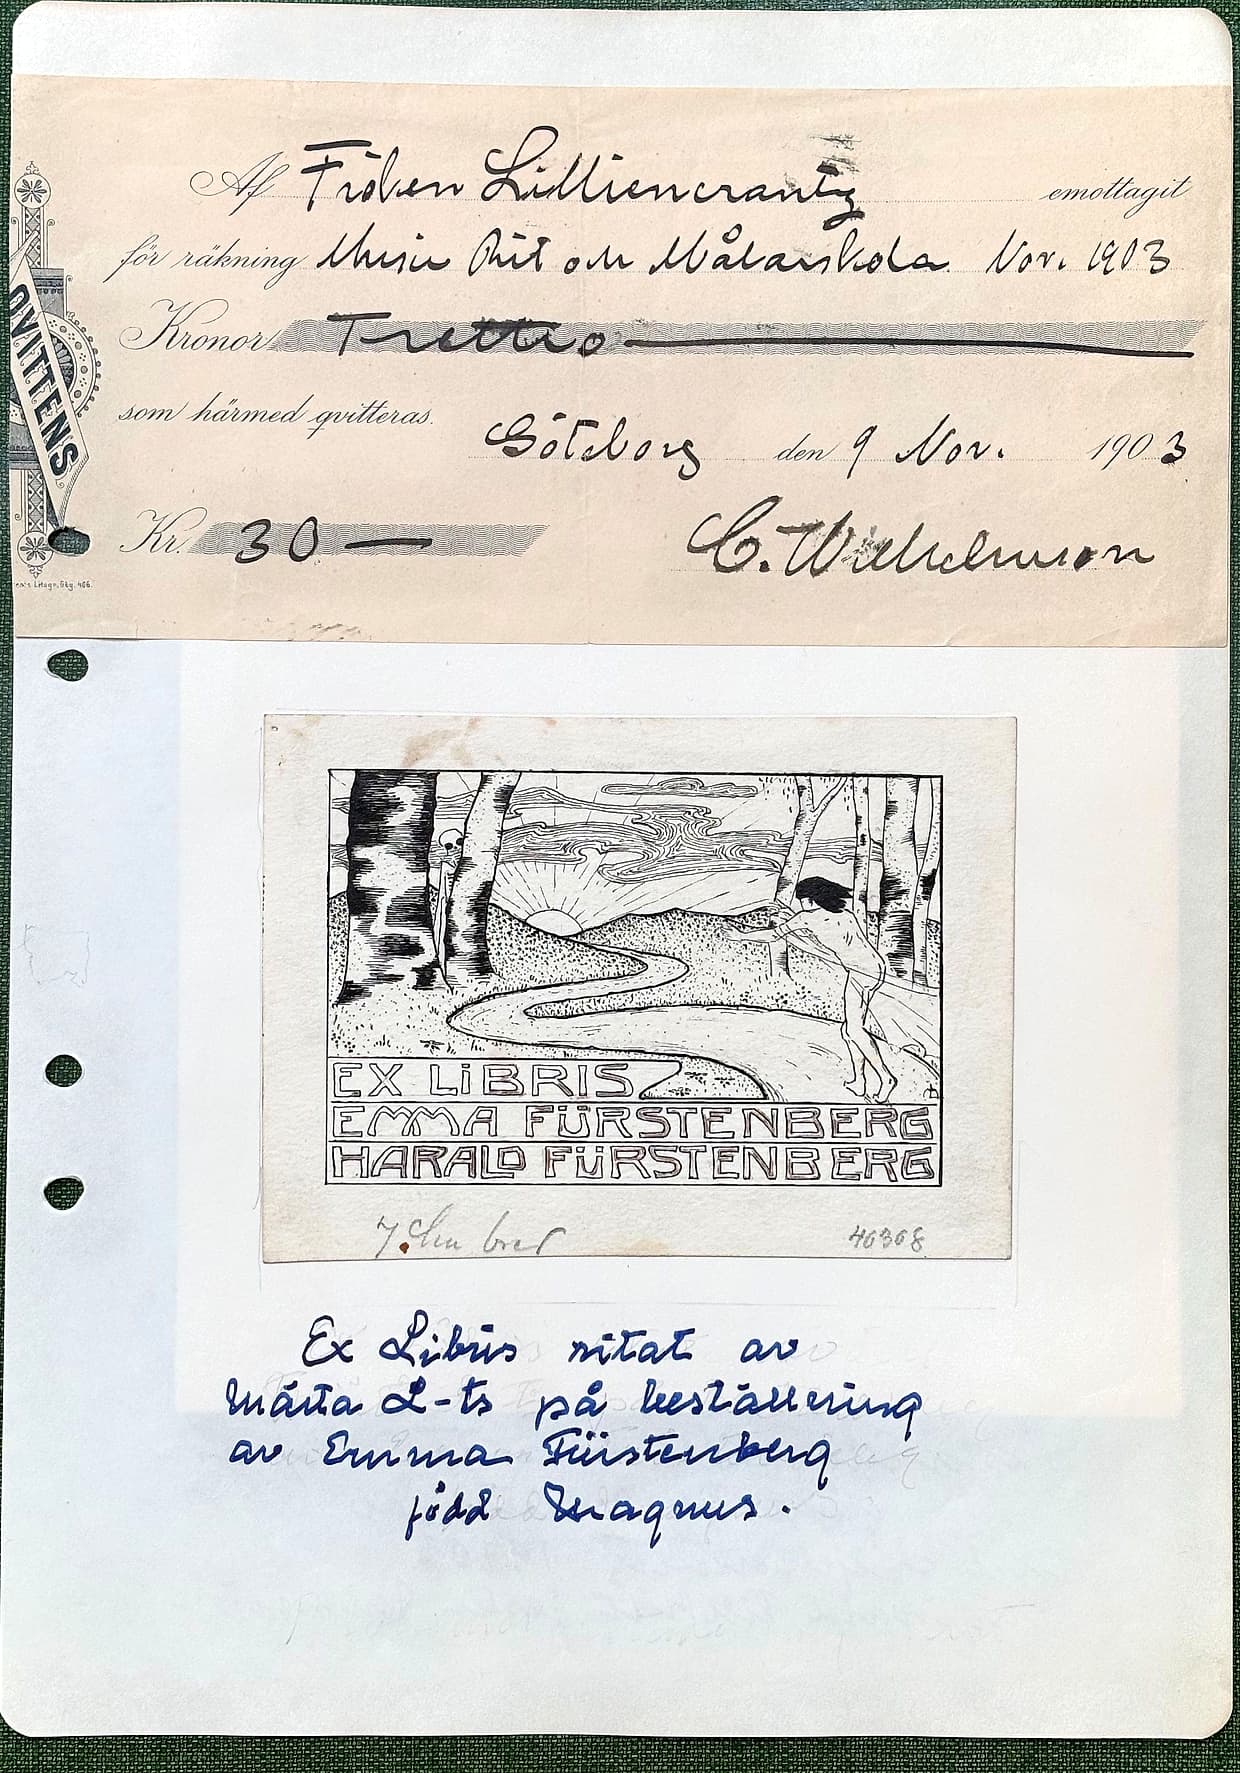 Af Fröken Lilliencrantz emottagit
för räkning Musei Rit och Målarskola Nov. 1903
Kronor Trettio
som härmed qvitteras.
Göteborg den 9 Nov. 1903
Kr. 30 —
C. Wilhelmson
QVITTENS
Litogr. Gbg. 466.
EX LIBRIS
EMMA FÜRSTENBERG
HARALD FÜRSTENBERG
7 cm bred
46368
Ex Libris ritat av
Märta L-ts på beställning
av Emma Fürstenberg
född Magnus.